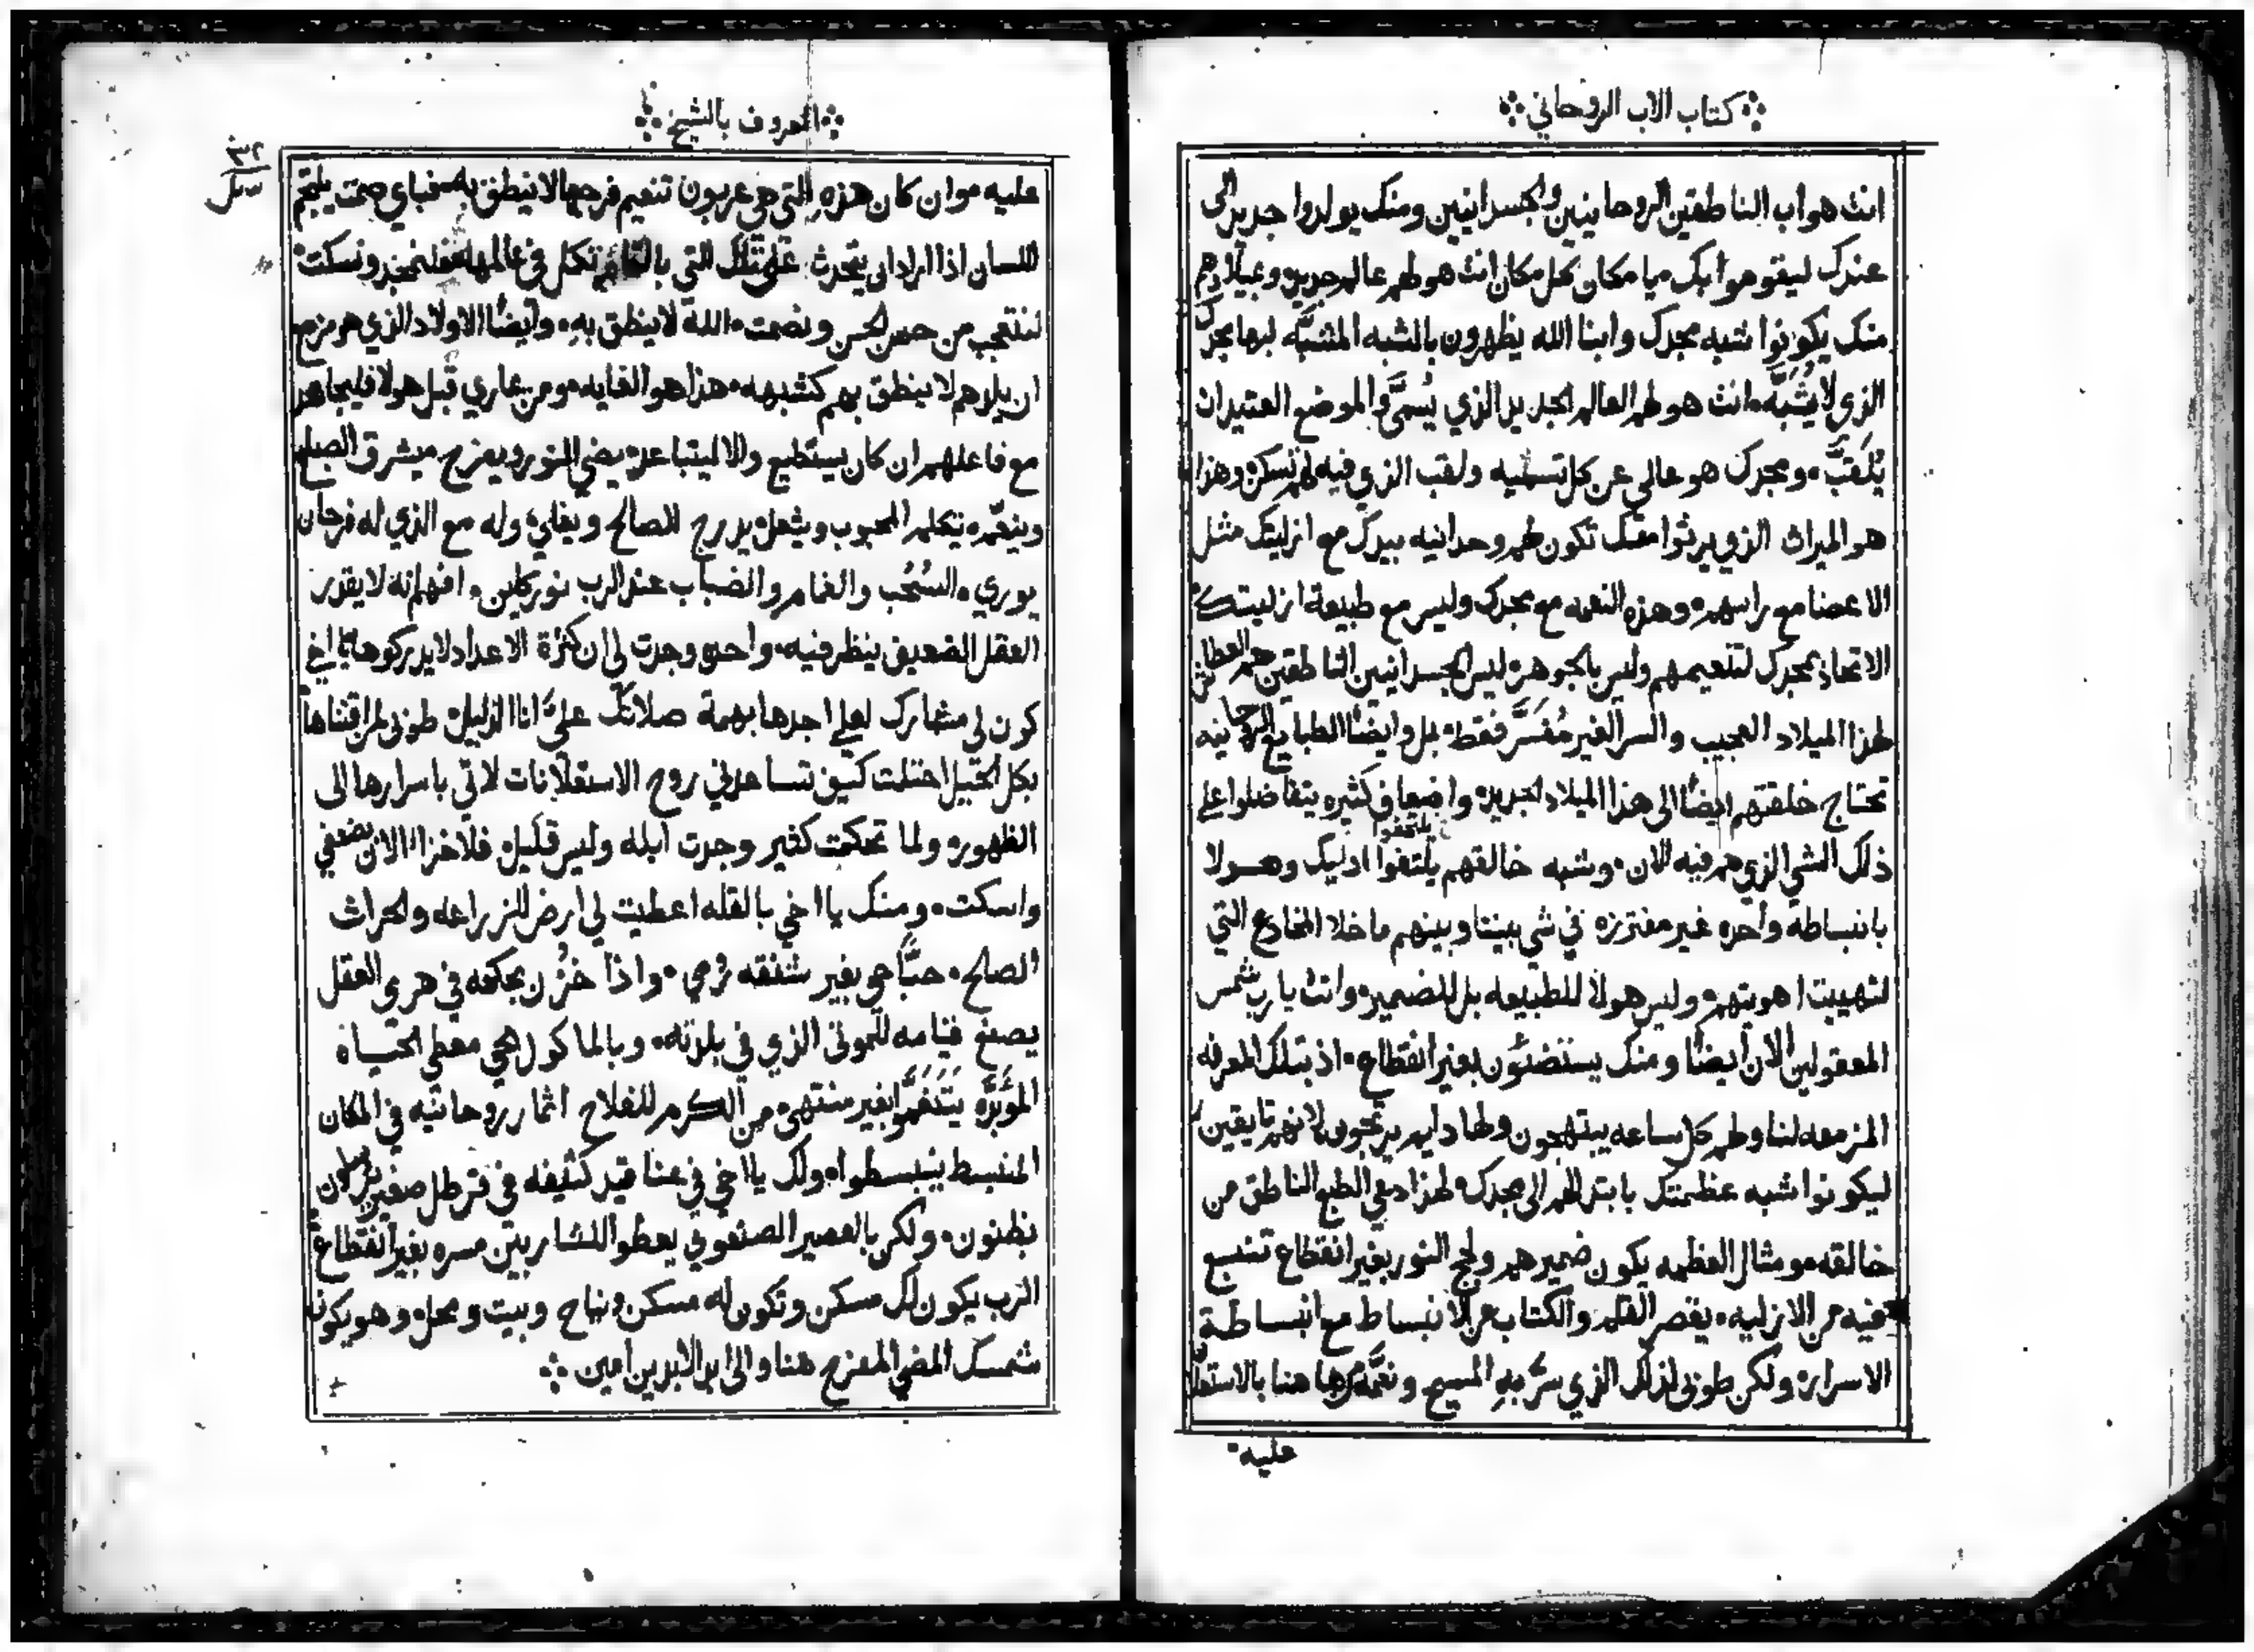 كتاب الاب الروحاني
انت هو اب الناطقين الروحانيين والجسدانيين ومنك يولدوا جديد الى
عندك ليقوهوا بك يا مكان كل مكان انت هو لهم عالم جديد وعيلادهم
منك يكونوا شبه مجدك وابنا الله يظهرون بالشبه المتشبَّه لبها مجدك
الذي لا يُشبَّه انت هو لهم العالم الجديد الذي يُسمَّى والموضع العتيد ان
يُلَقَّب ومجدك هو عالي عن كل تسميه ولقب الذي فيه لهم تسكن وهذا
هو الميراث الذي يرثوا منك تكون لهم وحدانيه بيدك مع ازليتك مثل
الاعضا مع راسهم وهذه النعمه مع مجدك وليس مع طبيعة ازليتك
الاتحاد بمجدك لتنعيمهم وليس بالجوهر ليس الجسدانيين الناطقين هم العطاش
لهذا الميلاد العجيب والسر الغير مُفسَّر فقط بل وايضًا الطبايع الروحانيه
تحتاج خلقتهم ايضًا الى هذا الميلاد الجديد واضعاف كثيره يتفاضلوا على
ذلك الشي الذي هم فيه الان وشبه خالقهم يلتقوا اوليك وهولا
بانبساطه واحده غير مفترزه في شي بيننا وبينهم ما خلا المخادع التي
لتهييت اهويتهم وليس هولا للطبيعه بل للضمير وانت يا رب شمس
المعقولين الان ايضًا ومنك يستضئون بغير انقطاع اذ بتلك المعرفه
المزمعه لنا ولهم كل ساعه يبتهجون ولها دايم يرتجون لانهم تايقين
ليكونوا شبه عظمتك بابتدالهم الى مجدك لهذا دعي الطبع الناطق من
خالقه ومثال العظمه يكون ضميرهم ولجج النور بغير انقطاع تنبع
فيه من الازليه يقصر القلم والكتاب عن الانبساط مع انبساطة
الاسرار ولكن طوبى لذلك الذي سُرَّ به المسيح ونعَّمه ها هنا بالاستعلان
عليه
المعروف بالشيخ
عليه وان كان هذه التي هي عربون تنعيم فرحها لا ينطق به فباي صمت يلجم
اللسان اذا اراد ان يتحدث على تلك التي بالتمام تكمل في عالمها فلنمجد ونسكت
لنتعجب من حسن الحسن ونصمت الله لا ينطق به وايضًا الاولاد الذي هو مزمع
ان يلدهم لا ينطق بهم كشبهه هذا هو الغايه ومن عاري قبل هولا فليجاهد
مع فاعلهم ان كان يستطيع والا ليتباعد يضي النور ويفرح ميشرق الصباح
وينعِّم يتكلم المحبوب ويشعل يدرج للصالح ويغلي وله مع الذي له فرحان
يوري السُحُب والغمام والضباب عند الرب نور كاين افهم انه لا يقدر
العقل الضعيف ينظر فيه واحده وجدت لي ان كثرة الاعداد لا يدركوها يا اخي
كون لي مشارك لعلي اجدها بهمة صلاتك عليَّ انا الذليل طوبى لمن اقتناها
بكل الحيل احتلت كيف تساعدني روح الاستعلانات لاتي باسرارها الى
الظهور ولما تحكمت كثير وجدت ابله وليس قليل فلاخزا الان بضعفي
واسكت ومنك يا اخي بالفله اعطيت لي ارض للزراعه والحراث
الصالح حبًّا حي بغير شفقه رمي واذا خُزن بحكمه في هري العقل
يصنع قيامه للموتى الذي في بلدته وبالماكول يحي معطي الحياه
المؤبَّده يَتَدَفَّقوا بغير منتهى من الكرم للفلاح اثمار روحانيه في المكان
المنبسط ينبسطوا ولك يا اخي في عناقيد كثيفه في قرطل صغير
يظنون ولكن بالعصير الصنعوني يعطوا للشاربين مسره بغير انقطاع
الرب يكون لك مسكن وتكون له مسكن ونياح وبيت ومحل وهو يكون
شمسك المضي المفرح هنا والى ابد الابدين امين